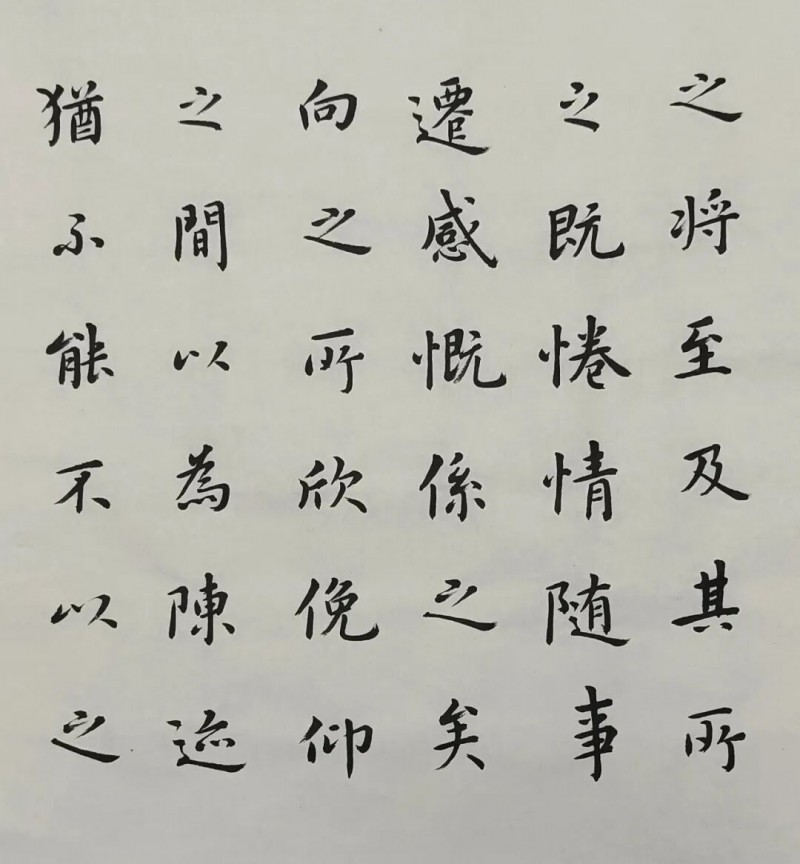 之将至及其所
之既惓情随事
遷感慨係之矣
向之所欣俛仰
之間以為陳迹
猶不能不以之